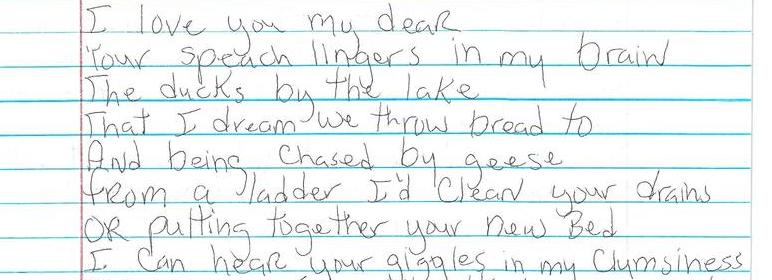 I love you my dear
Your speach lingers in my brain
The ducks by the lake
That I dream we throw bread to
And being chased by geese
from a ladder I'd clean your drains
OR putting together your new Bed
I can hear your giggles in my clumsiness